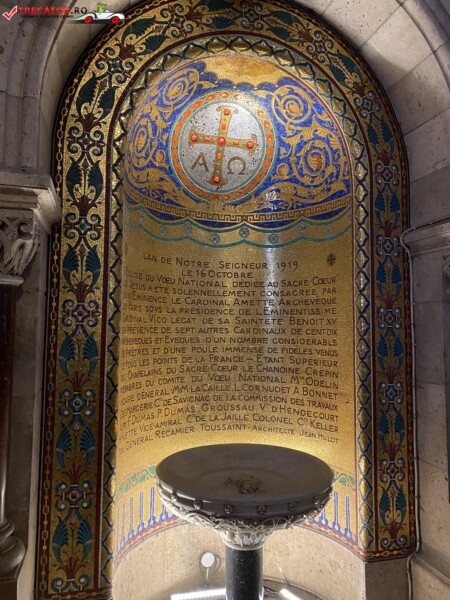 TRECATOR.RO
Α Ω
L'AN DE NOTRE SEIGNEUR 1919
LE 16 OCTOBRE
ÉGLISE DU VOEU NATIONAL DÉDIÉE AU SACRÉ-COEUR
DE JÉSUS A ÉTÉ SOLENNELLEMENT CONSACRÉE, PAR
ÉMINENCE LE CARDINAL AMETTE ARCHEVÊQUE
PARIS SOUS LA PRÉSIDENCE DE L'ÉMINENTISSIME
CARDINAL VICO LÉGAT DE SA SAINTETÉ BENOIT XV
PRÉSENCE DE SEPT AUTRES CARDINAUX DE CENT DIX
ÉVÊQUES ET ÉVÊQUES D'UN NOMBRE CONSIDÉRABLE
PRÊTRES ET D'UNE FOULE IMMENSE DE FIDÈLES VENUS
TOUS LES POINTS DE LA FRANCE - ÉTANT SUPÉRIEUR
CHAPELAINS DU SACRÉ-COEUR LE CHANOINE CRÉPIN
MEMBRES DU COMITÉ DU VOEU NATIONAL MGR ODELIN
GÉNÉRAL MM. LACAILLE L. CORNUDET A. BONNET
MARGERIE CTE DE SAVIGNAC DE LA COMMISSION DES TRAVAUX
F. DUMAS P. DUMAS GROUSSAU VTE D'HENDECOURT
VICE-AMIRAL CTE DE LA JAILLE COLONEL CTE KELLER
GÉNÉRAL RÉCAMIER TOUSSAINT-ARCHITECTE JEAN HULOT